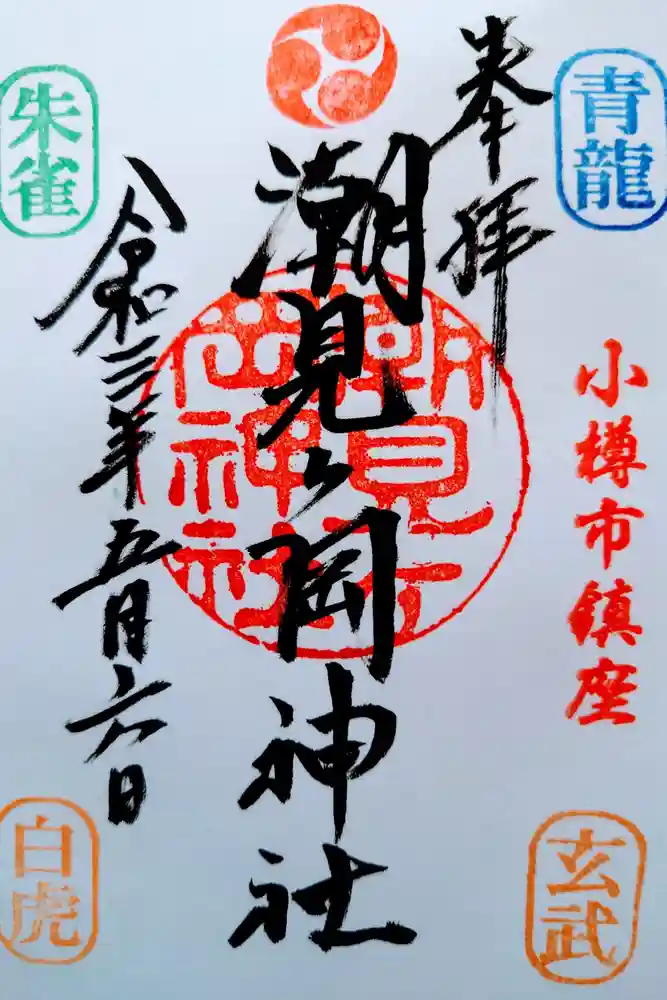 青龍
奉拝
小樽市鎮座
潮見ヶ岡神社
潮見ヶ
岡神社
朱雀
令和三年五月六日
玄武
白虎